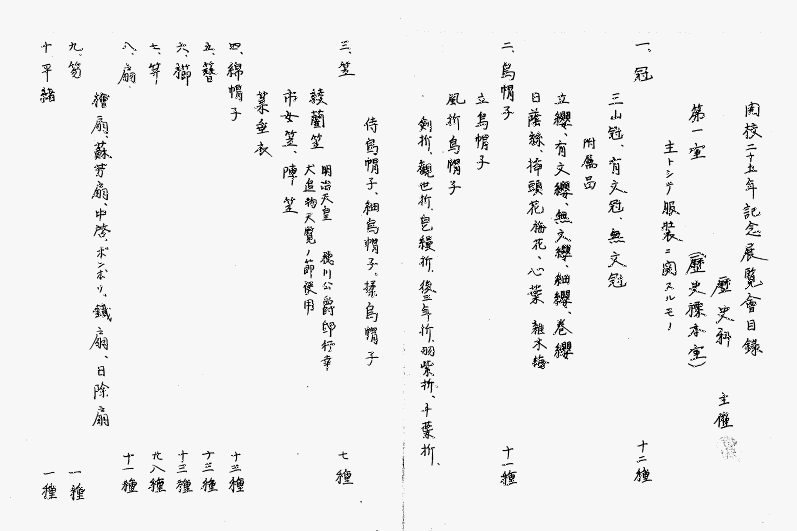 開校二十五年記念展覽會目錄
歷史科 主催
第一室 (歷史標本室)
主トシテ服裝ニ関スルモノ
一、冠 十二種
三山冠、有文冠、無文冠
附屬品
立纓、有文纓、無文纓、細纓、巻纓
日蔭絲、揷頭花 梅花、心葉
二、烏帽子 十一種
立烏帽子
風折烏帽子
剣折、觀世折、皀縵折、後三年折、羽柴折、千葉折、
侍烏帽子、細烏帽子、揉烏帽子
三、笠 七種
綾藺笠 明治天皇 徳川公爵邸行幸
犬追物天覽ノ節使用
市女笠、陣笠
菜垂衣
四、綿帽子 十三種
五、簪 十三種
六、櫛 十三種
七、笄 九八種
八、扇、 十一種
繪扇、蘇芳扇、中啓、ボンボリ、鐵扇、日除扇
九、笏 一種
十 平緒 一種